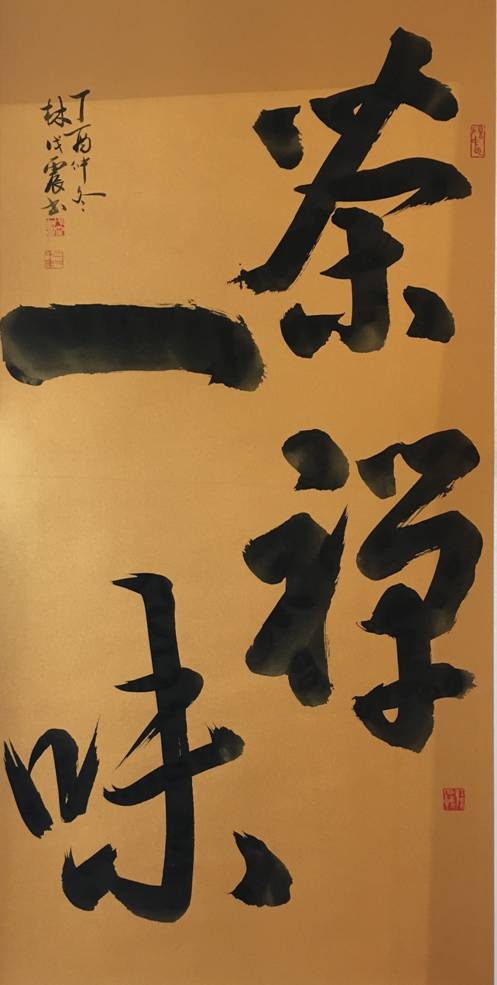 茶禅
一味
丁酉仲冬
林戊震书